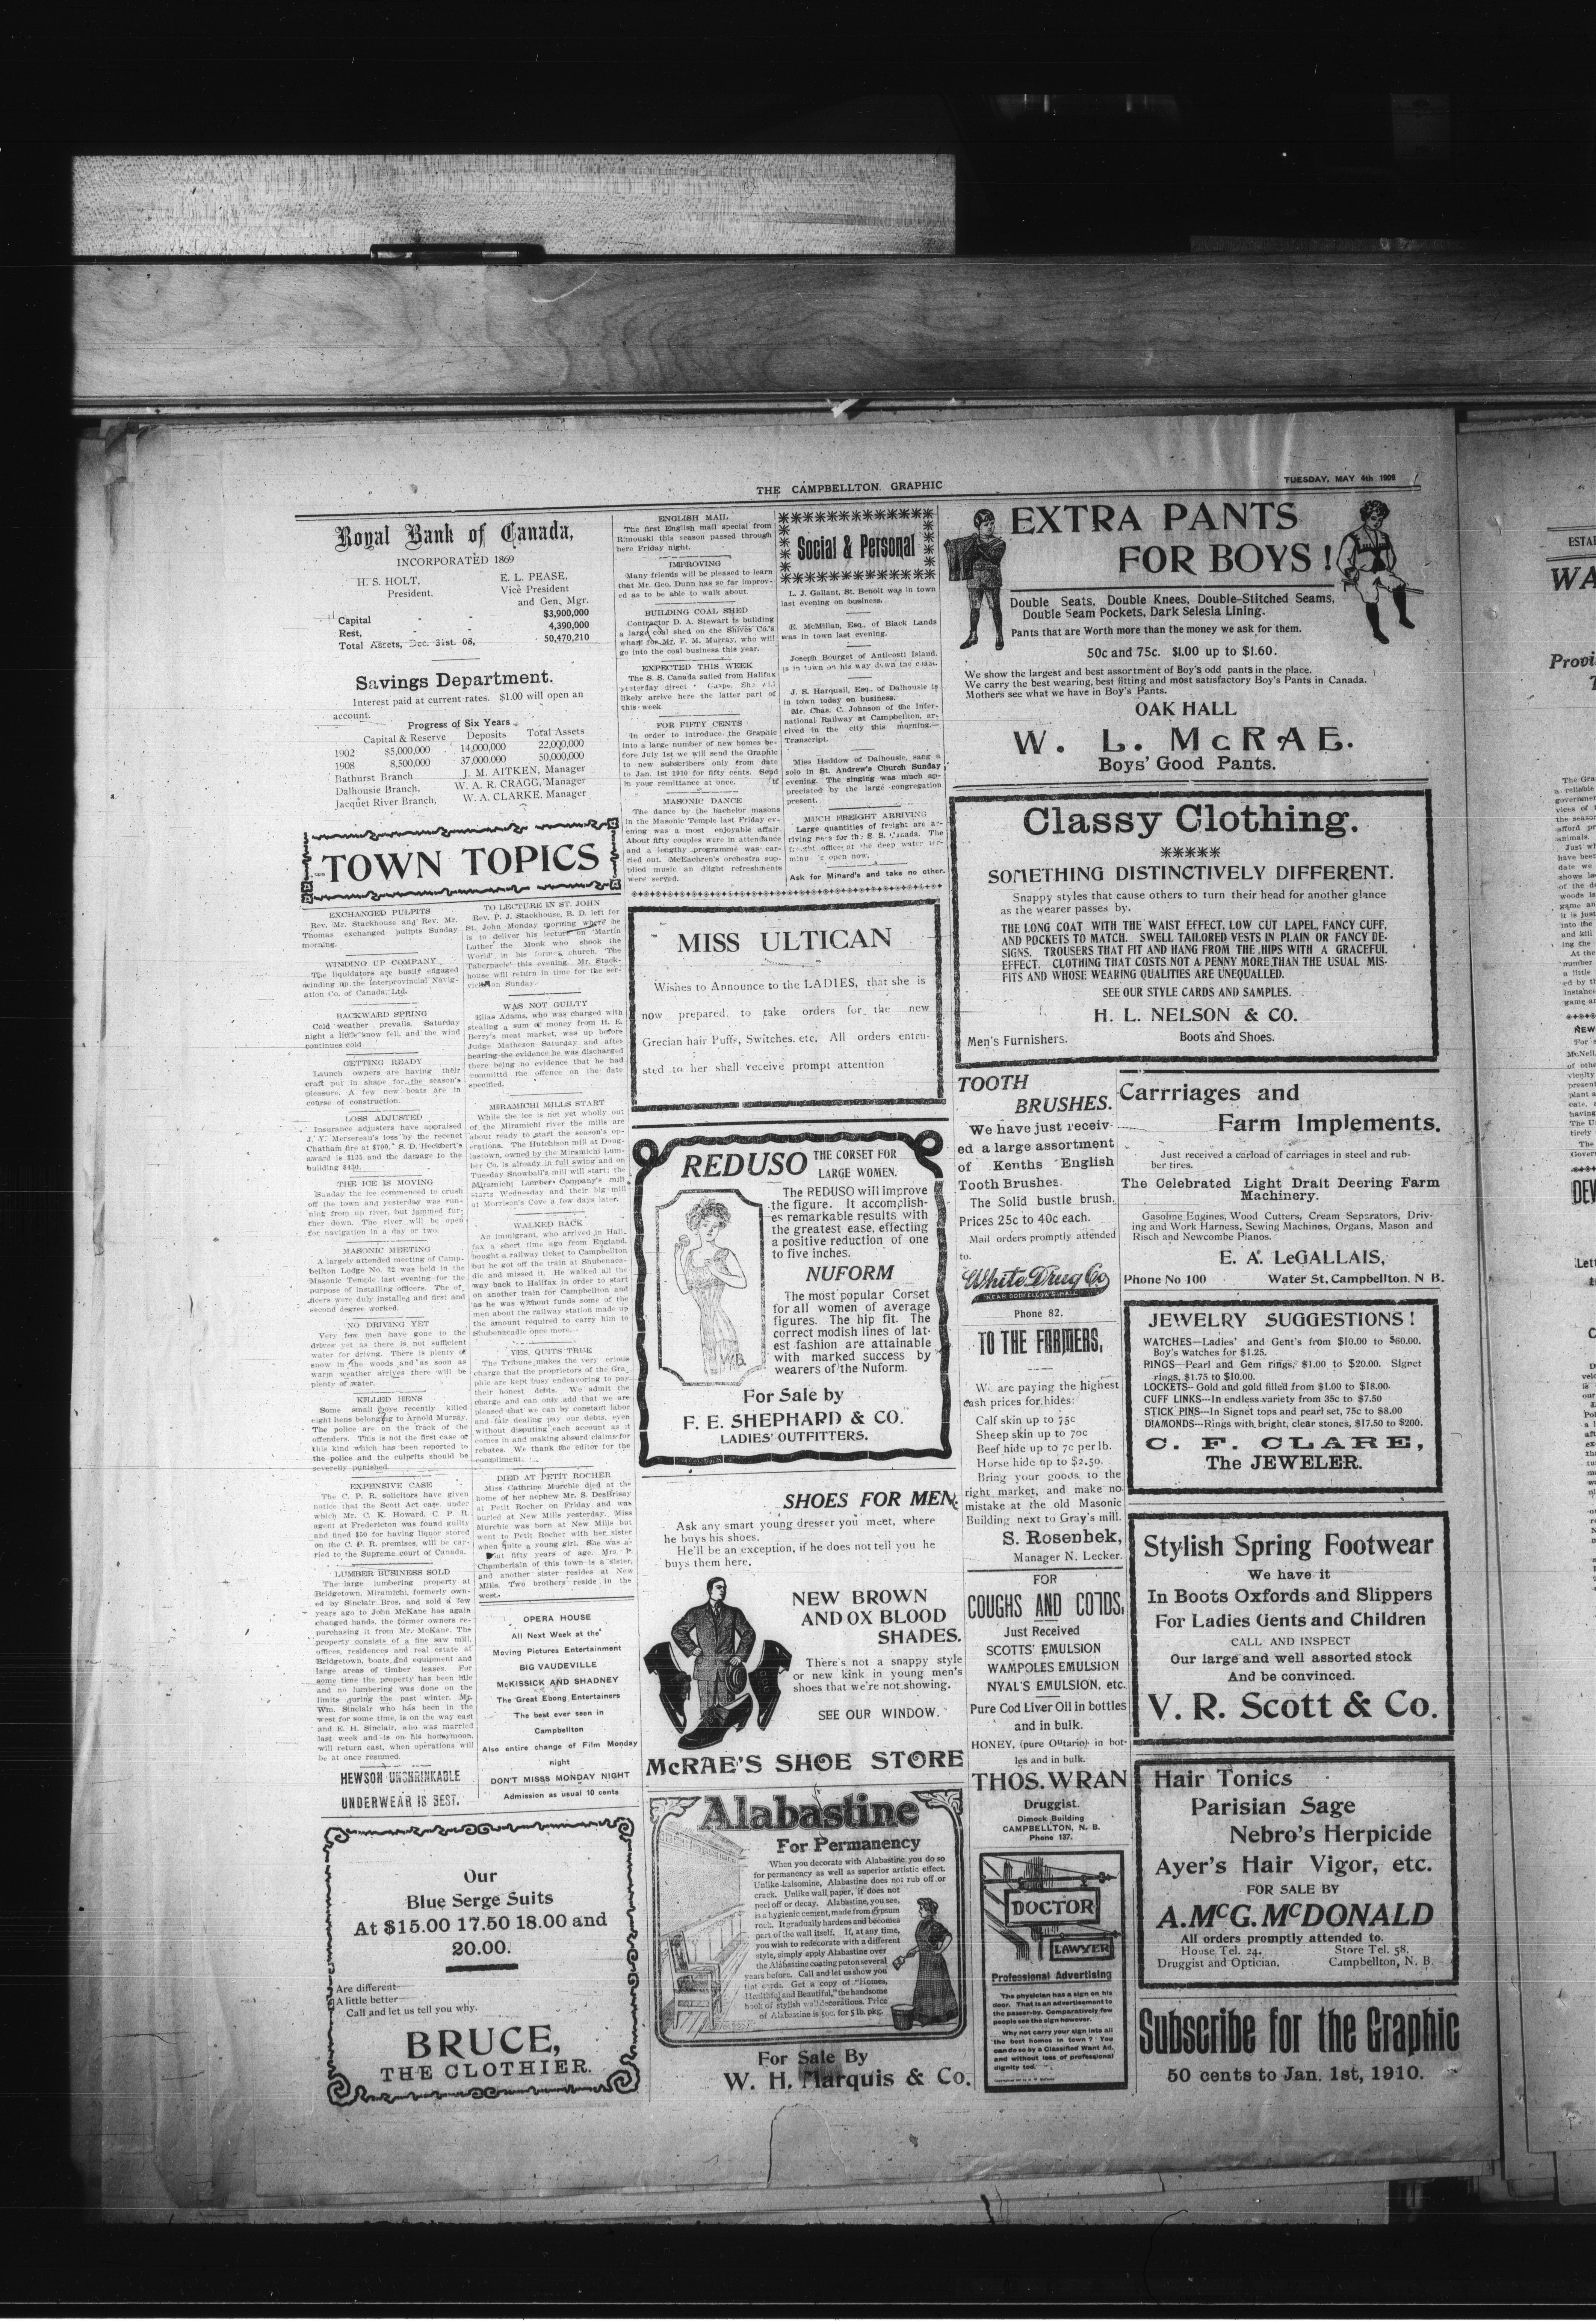 THE CAMPBELLTON GRAPHIC
TUESDAY, MAY 4th 1909
Royal Bank of Canada,
INCORPORATED 1869
H. S. HOLT,
President.
E. L. PEASE,
Vice President
and Gen, Mgr.
Capital - - $3,900,000
Rest, - - 4,390,000
Total Assets, Dec. 31st. 08, 50,470,210
Savings Department.
Interest paid at current rates. $1.00 will open an
account.
Progress of Six Years
Capital & Reserve Deposits Total Assets
1902 $5,000,000 14,000,000 22,000,000
1908 8,500,000 37,000,000 50,000,000
Bathurst Branch J. M. AITKEN, Manager
Dalhousie Branch, W. A. R. CRAGG, Manager
Jacquet River Branch, W. A. CLARKE, Manager
TOWN TOPICS
EXCHANGED PULPITS
Rev. Mr. Stackhouse and Rev. Mr.
Thomas exchanged pulipts Sunday
morning.
WINDING UP COMPANY
The liquidators are busily engaged
winding up the Interprovincial Navig-
ation Co. of Canada, Ltd.
BACKWARD SPRING
Cold weather prevails. Saturday
night a little snow fell, and the wind
continues cold
GETTING READY
Launch owners are having their
craft put in shape for the season's
pleasure. A few new boats are in
course of construction.
LOSS ADJUSTED
Insurance adjusters have appraised
J. Y. Mersereau's loss by the recenet
Chatham fire at $700. S. D. Heckbert's
award is $135 and the damage to the
building $430.
THE ICE IS MOVING
Sunday the ice commenced to crush
off the town and yesterday was run-
ning from up river, but jammed fur-
ther down. The river will be open
for navigation in a day or two.
MASONIC MEETING
A largely attended meeting of Camp-
bellton Lodge No. 32 was held in the
Masonic Temple last evening for the
purpose of installing officers. The of-
ficers were duly installed and first and
second degree worked.
NO DRIVING YET
Very few men have gone to the
driver yet as there is not sufficient
water for drivng. There is plenty of
snow in the woods and as soon as
warm weather arrives there will be
plenty of water.
KILLED HENS
Some small boys recently killed
eight hens belonging to Arnold Murray.
The police are on the track of the
offenders. This is not the first case of
this kind which has been reported to
the police and the culprits should be
severelly punished.
EXPENSIVE CASE
The C. P. R. solicitors have given
notice that the Scott Act case, under
which Mr. C. K. Howard, C. P. R.
agent at Fredericton was found guilty
and fined $50 for having liquor stored
on the C. P. R. premises, will be car-
ried to the Supreme court of Canada.
LUMBER BUSINESS SOLD
The large lumbering property at
Bridgetown, Miramichi, formerly own-
ed by Sinclair Bros. and sold a few
years ago to John McKane has again
changed hands, the former owners re-
purchasing it from Mr. McKane. The
property consists of a fine saw mill,
offices, residences and real estate at
Bridgetown, boats and equipment and
large areas of timber leases. For
some time the property has been idle
and no lumbering was done on the
limits guring the past winter. Mr.
Wm. Sinclair who has been in the
west for some time, is on the way east
and E. H. Sinclair, who was married
last week and is on his honeymoon,
will return east, when operations will
be at once resumed.
HEWSON UNSHRINKABLE
UNDERWEAR IS BEST.
TO LECTURE IN ST. JOHN
Rev. P. J. Stackhouse, B. D. left for
St. John Monday morning where he
is to deliver his lecture on 'Martin
Luther the Monk who shook the
World' in his former church, 'The
Tabernacle' this evening. Mr. Stack-
house will return in time for the ser-
vices on Sunday
WAS NOT GUILTY
Elias Adams, who was charged with
stealing a sum of money from H. E.
Berry's meat market, was up before
Judge Matheson Saturday and after
hearing the evidence he was discharged
there being no evidence that he had
committd the offence on the date
specified.
MIRAMICHI MILLS START
While the ice is not yet wholly out
of the Miramichi river the mills are
about ready to start the season's op-
erations. The Hutchison mill at Doug-
lastown, owned by the Miramichi Lum-
ber Co. is already in full swing and on
Tuesday Snowball's mill will start; the
Miramichi Lumber Company's mill
starts Wednesday and their big mill
at Morrison's Cove a few days later.
WALKED BACK
An immigrant, who arrived in Hali-
fax a short time ago from England,
bought a railway ticket to Campbellton
but he got off the train at Shubenaca-
die and missed it. He walked all the
way back to Halifax in order to start
on another train for Campbellton and
as he was without funds some of the
men about the railway station made up
the amount required to carry him to
Shubenacadie once more.
YES, QUITS TRUE
The Tribune makes the very erious
charge that the proprietors of the Gra
phic are kept busy endeavoring to pay
their honest debts. We admit the
charge and can only add that we are
pleased that we can by constant labor
and fair dealing pay our debts, even
without disputing each account as it
comes in and making absurd claims for
rebates. We thank the editor for the
compliment.
DIED AT PETIT ROCHER
Miss Cathrine Murchie died at the
home of her nephew Mr. S. DesBrisay
at Petit Rocher on Friday and was
buried at New Mills yesterday. Miss
Murchie was born at New Mills but
went to Petit Rocher with her sister
when quite a young girl. She was a-
bout fifty years of age. Mrs. P.
Chamberlain of this town is a sister,
and another sister resides at New
Mills. Two brothers reside in the
west.
OPERA HOUSE
All Next Week at the
Moving Pictures Entertainment
BIG VAUDEVILLE
McKISSICK AND SHADNEY
The Great Ebong Entertainers
The best ever seen in
Campbellton
Also entire change of Film Monday
night
DON'T MISSS MONDAY NIGHT
Admission as usual 10 cents
Our
Blue Serge Suits
At $15.00 17.50 18.00 and
20.00.
Are different
A little better
Call and let us tell you why.
BRUCE,
THE CLOTHIER.
ENGLISH MAIL
The first English mail special from
Rimouski this season passed through
here Friday night.
IMPROVING
Many friends will be pleased to learn
that Mr. Geo. Dunn has so far improv-
ed as to be able to walk about.
BUILDING COAL SHED
Contractor D. A. Stewart is building
a large coal shed on the Shives Co.'s
wharf for Mr. F. M. Murray, who will
go into the coal business this year.
EXPECTED THIS WEEK
The S. S. Canada sailed from Halifax
yesterday direct Gaspe. She will
likely arrive here the latter part of
this week
FOR FIFTY CENTS
In order to introduce the Graphic
into a large number of new homes be-
fore July 1st we will send the Graphic
to new subscribers only from date
to Jan. 1st 1910 for fifty cents. Send
in your remittance at once. tf
MASONIC DANCE
The dance by the bachelor masons
in the Masonic Temple last Friday ev-
ening was a most enjoyable affair.
About fifty couples were in attendance
and a lengthy programme was car-
ried out. McEachren's orchestra sup-
plied music an dlight refreshments
were served.
Social & Personal
L. J. Gallant, St. Benoit was in town
last evening on business.
E. McMillan, Esq., of Black Lands
was in town last evening.
Joseph Bourget of Anticosti Island,
is in town on his way down the coast.
J. S. Harquail, Esq., of Dalhousie is
in town today on business.
Mr. Chas. C. Johnson of the Inter-
national Railway at Campbellton, ar-
rived in the city this morning.—
Transcript.
Miss Haddow of Dalhousie, sang a
solo in St. Andrew's Church Sunday
evening. The singing was much ap-
preciated by the large congregation
present.
MUCH FREIGHT ARRIVING
Large quantities of freight are ar-
riving here for the S. S. Canada. The
freight office at the deep water ter-
minus is open now.
Ask for Minard's and take no other.
MISS ULTICAN
Wishes to Announce to the LADIES, that she is
now prepared to take orders for the new
Grecian hair Puffs, Switches, etc. All orders entru-
sted to her shall receive prompt attention
REDUSO THE CORSET FOR
LARGE WOMEN.
The REDUSO will improve
the figure. It accomplish-
es remarkable results with
the greatest ease, effecting
a positive reduction of one
to five inches.
NUFORM
The most popular Corset
for all women of average
figures. The hip fit. The
correct modish lines of lat-
est fashion are attainable
with marked success by
wearers of the Nuform.
W.B.
For Sale by
F. E. SHEPHARD & CO.
LADIES' OUTFITTERS.
SHOES FOR MEN.
Ask any smart young dresser you meet, where
he buys his shoes.
He'll be an exception, if he does not tell you he
buys them here.
NEW BROWN
AND OX BLOOD
SHADES.
There's not a snappy style
or new kink in young men's
shoes that we're not showing.
SEE OUR WINDOW.
McRAE'S SHOE STORE
Alabastine
For Permanency
When you decorate with Alabastine you do so
for permanency as well as superior artistic effect.
Unlike kalsomine, Alabastine does not rub off or
crack. Unlike wall paper, it does not
peel off or decay. Alabastine, you see,
is a hygienic cement, made from gypsum
rock. It gradually hardens and becomes
part of the wall itself. If, at any time,
you wish to redecorate with a different
style, simply apply Alabastine over
the Alabastine coating put on several
years before. Call and let us show you
tint cards. Get a copy of "Homes,
Healthful and Beautiful," the handsome
book of stylish wall decorations. Price
of Alabastine is 50c. for 5 lb. pkg.
For Sale By
W. H. Marquis & Co.
EXTRA PANTS
FOR BOYS!
Double Seats, Double Knees, Double-Stitched Seams,
Double Seam Pockets, Dark Selesia Lining.
Pants that are Worth more than the money we ask for them.
50c and 75c. $1.00 up to $1.60.
We show the largest and best assortment of Boy's odd pants in the place.
We carry the best wearing, best fitting and most satisfactory Boy's Pants in Canada.
Mothers see what we have in Boy's Pants.
OAK HALL
W. L. McRAE.
Boys' Good Pants.
Classy Clothing.
*****
SOMETHING DISTINCTIVELY DIFFERENT.
Snappy styles that cause others to turn their head for another glance
as the wearer passes by.
THE LONG COAT WITH THE WAIST EFFECT, LOW CUT LAPEL, FANCY CUFF,
AND POCKETS TO MATCH. SWELL TAILORED VESTS IN PLAIN OR FANCY DE-
SIGNS. TROUSERS THAT FIT AND HANG FROM THE HIPS WITH A GRACEFUL
EFFECT. CLOTHING THAT COSTS NOT A PENNY MORE THAN THE USUAL MIS-
FITS AND WHOSE WEARING QUALITIES ARE UNEQUALLED.
SEE OUR STYLE CARDS AND SAMPLES.
H. L. NELSON & CO.
Men's Furnishers. Boots and Shoes.
TOOTH
BRUSHES.
We have just receiv-
ed a large assortment
of Kenths English
Tooth Brushes.
The Solid bustle brush.
Prices 25c to 40c each.
Mail orders promptly attended
to.
White Drug Co
NEAR ODDFELLOW'S HALL
Phone 82.
TO THE FARMERS,
We are paying the highest
cash prices for hides:
Calf skin up to 75c
Sheep skin up to 70c
Beef hide up to 7c per lb.
Horse hide up to $2.50.
Bring your goods to the
right market, and make no
mistake at the old Masonic
Building next to Gray's mill.
S. Rosenhek,
Manager N. Lecker.
FOR
COUGHS AND COLDS,
Just Received
SCOTTS' EMULSION
WAMPOLES EMULSION
NYAL'S EMULSION, etc.
Pure Cod Liver Oil in bottles
and in bulk.
HONEY, (pure Ontario) in bot-
les and in bulk.
THOS. WRAN
Druggist.
Dimock Building
CAMPBELLTON, N. B.
Phone 137.
DOCTOR
LAWYER
Professional Advertising
The physician has a sign on his
door. That is an advertisement to
the passer-by. Comparatively few
people see the sign however.
Why not carry your sign into all
the best homes in town? You
can do so by a Classified Want Ad.
and without loss of professional
dignity too.
Carrriages and
Farm Implements.
Just received a carload of carriages in steel and rub-
ber tires.
The Celebrated Light Drait Deering Farm
Machinery.
Gasoline Engines, Wood Cutters, Cream Separators, Driv-
ing and Work Harness, Sewing Machines, Organs, Mason and
Risch and Newcombe Pianos.
E. A. LeGALLAIS,
Phone No 100 Water St, Campbellton, N B.
JEWELRY SUGGESTIONS!
WATCHES—Ladies' and Gent's from $10.00 to $60.00.
Boy's watches for $1.25.
RINGS—Pearl and Gem rings, $1.00 to $20.00. Signet
rings, $1.75 to $10.00.
LOCKETS—Gold and gold filled from $1.00 to $18.00.
CUFF LINKS—In endless variety from 35c to $7.50
STICK PINS—In Signet tops and pearl set, 75c to $8.00
DIAMONDS—Rings with bright, clear stones, $17.50 to $200.
C. F. CLARE,
The JEWELER.
Stylish Spring Footwear
We have it
In Boots Oxfords and Slippers
For Ladies Gents and Children
CALL AND INSPECT
Our large and well assorted stock
And be convinced.
V. R. Scott & Co.
Hair Tonics
Parisian Sage
Nebro's Herpicide
Ayer's Hair Vigor, etc.
FOR SALE BY
A. McG. McDONALD
All orders promptly attended to.
House Tel. 24. Store Tel. 58.
Druggist and Optician. Campbellton, N. B.
Subscribe for the Graphic
50 cents to Jan. 1st, 1910.